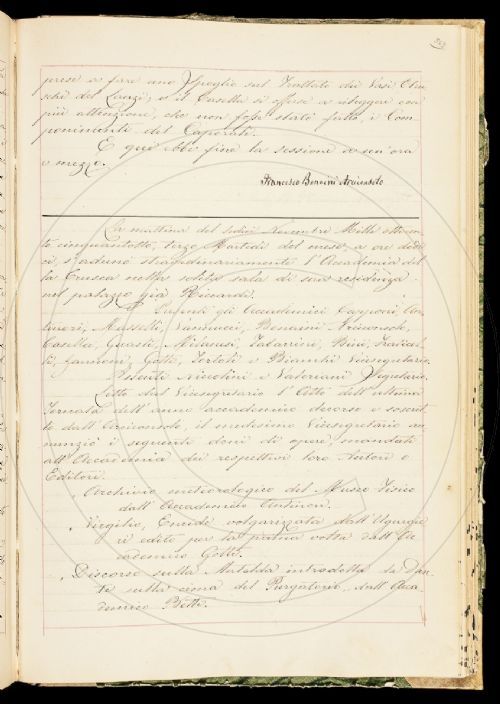 prese a fare uno Spoglio sul Trattato dei Vasi Etru
schi del Lanzi, e il Casella si offese a rileggere con
più attenzione, che non fosse stato fatto, i Com
ponimenti del Caporali.
E qui ebbe fine la sessione a un'ora
e mezzo.
Francesco Bonaini Arciconsolo
La mattina del sedici Novembre Mille ottocen
to cinquantotto, terzo Martedì del mese, a ore dodi
ci, s'adunò straordinariamente l'Accademia del
la Crusca nella solita sala di sua residenza
nel palazzo già Riccardi.
Presenti gli Accademici Capponi
Maselli, Vannucci, Bonaini Arciconsolo,
Casella, Guasti, Milanesi, Tabarrini, Bini, Fraticel
li, Gotti, Tortoli e Bianchi Vicesegretario.
Assenti Niccolini e Valeriani Segretario.
Letto dal Vicesegretario l'Atto dell'ultima
Tornata dell'anno accademico decorso e soscrit
to dall'Arciconsolo, il medesimo Vicesegretario an
nunziò i seguenti doni di opere, mandati
all'Accademia dai respettivi loro Autori o
Editori.
Archivio meteorologico del Museo Fisico
dall'Accademico Antinori.
Virgilio, Eneide volgarizzata dall'Ugurgie
ri edita per la prima volta dall'Ac
cademico Gotti.
Discorso sulla Matelda introdotta da Dan
te sulla cima del Purgatorio, dall'Acca
demico Betti.